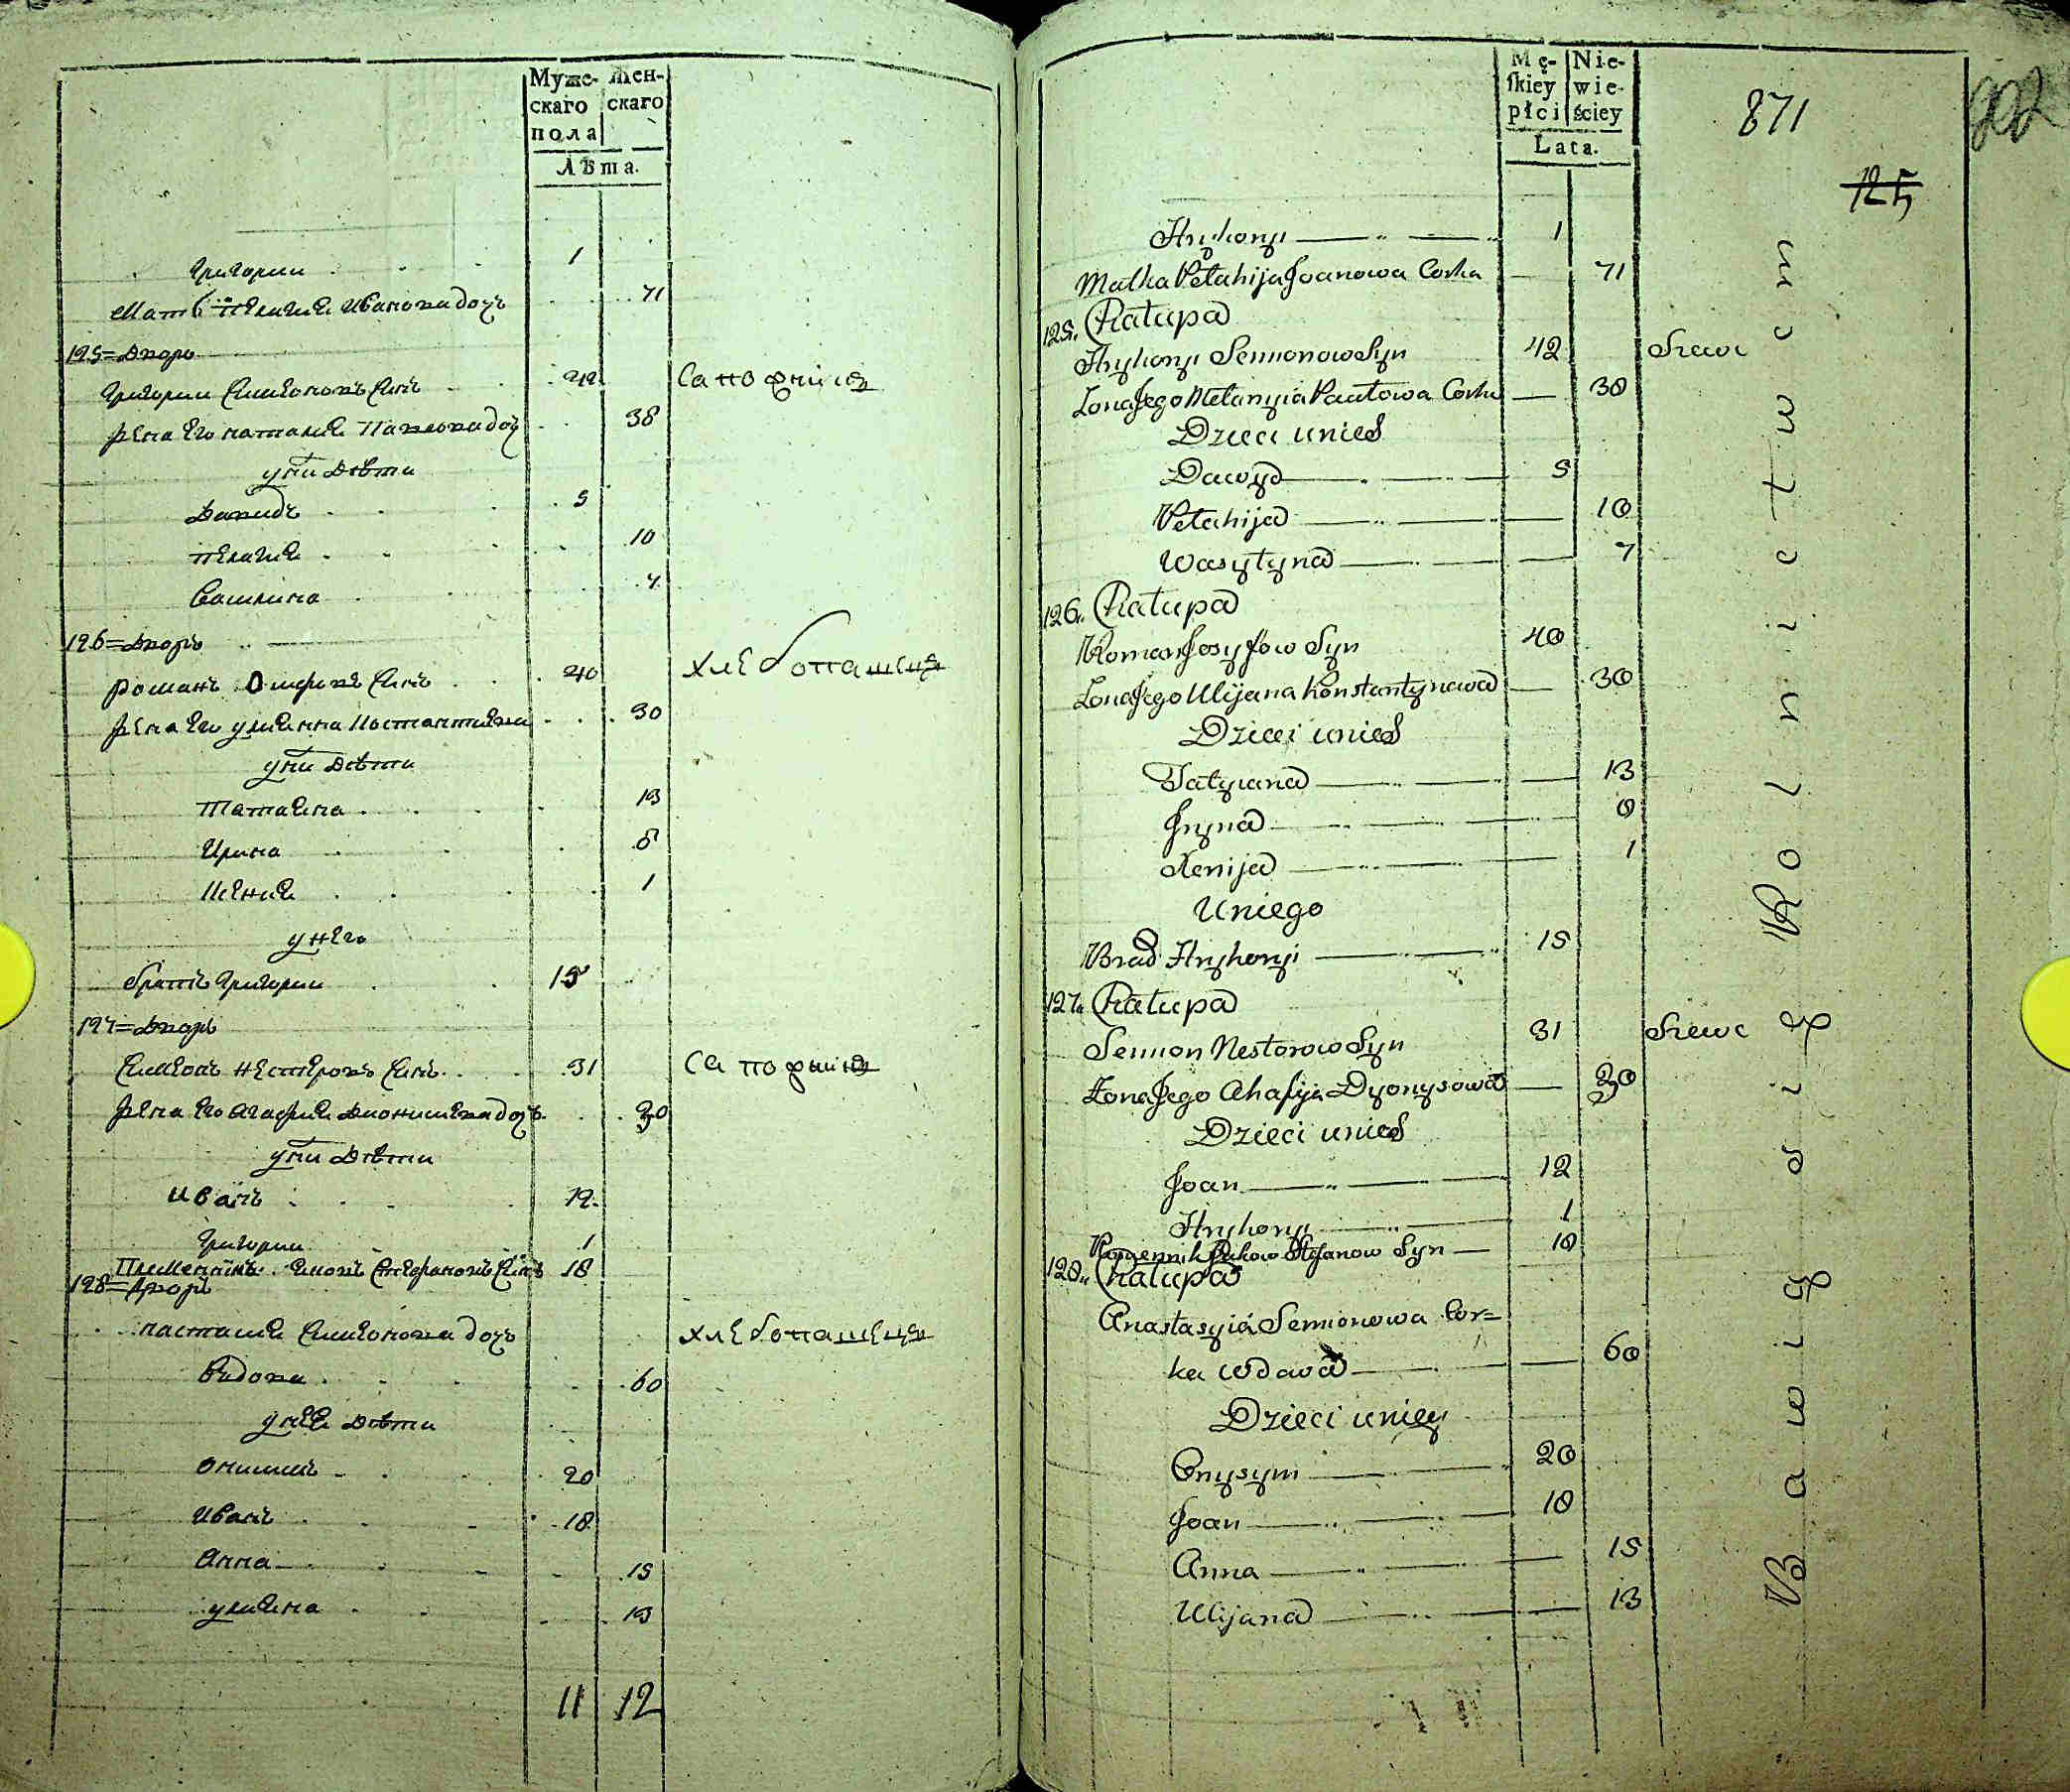 Муже- скаго пола
Жен- скаго
Лѣта.
Григории 1
Мать Пелагия Иванова дочь 71
125 = Дворъ
Григории Симеоновъ Сынъ 42 Сапожникъ
Жена его Наталия Павлова дочь 38
у них Дѣти
Давидъ 5
Пелагия 10
Василина 7
126 = Дворъ
Романъ Осифовъ Сынъ 40 Хлебопашецъ
Жена его Улиянна Костантиева 30
у них Дѣти
Татаяна 13
Ирина 8
Ксения 1
у него
братъ Григории 15
127 = Дворъ
Симеонъ Нестеровъ Сынъ 31 Сапожникъ
Жена его Агафия Дионишева дочь 30
у них Дѣти
Иванъ 12
Григории 1
Племенникъ Стефановъ Сынъ 18
128 = Дворъ
Настасия Симеонова дочь Хлебопашецъ
Вдова 60
у нее Дѣти
Онисимъ 20
Иванъ 18
Анна 15
Улияна 13
11 12
Mę- skiey płci
Nie- wie- ściey
Lata.
871
125
Hryhoryi 1
Matka Pelahija Joanowa Corka 71
125. Chałupa
Hryhoryi Semionow Syn 42 Szewc
Zona Jego Melanyia Pawłowa Corka 38
Dzieci unich
Dawyd 5
Pelahija 10
Wasylyna 7
126. Chałupa
Roman Josyfow Syn 40
Zona Jego Ulijana Konstantynowa 30
Dzieci unich
Tatyiana 13
Jryna 8
Xenija 1
Uniego
Brad Hryhoryi 15
127. Chałupa
Semion Nestorow Syn 31 Szewc
Zona Jego Ahafija Dyonysowa 30
Dzieci unich
Joan 12
Hryhoryi 1
Stefanow Syn 18
128. Chałupa
Anastasyia Semionowa Cor=
ka Wdowa 60
Dzieci uniey
Onysym 20
Joan 18
Anna 15
Ulijana 13
Bawią się Rolnictwem